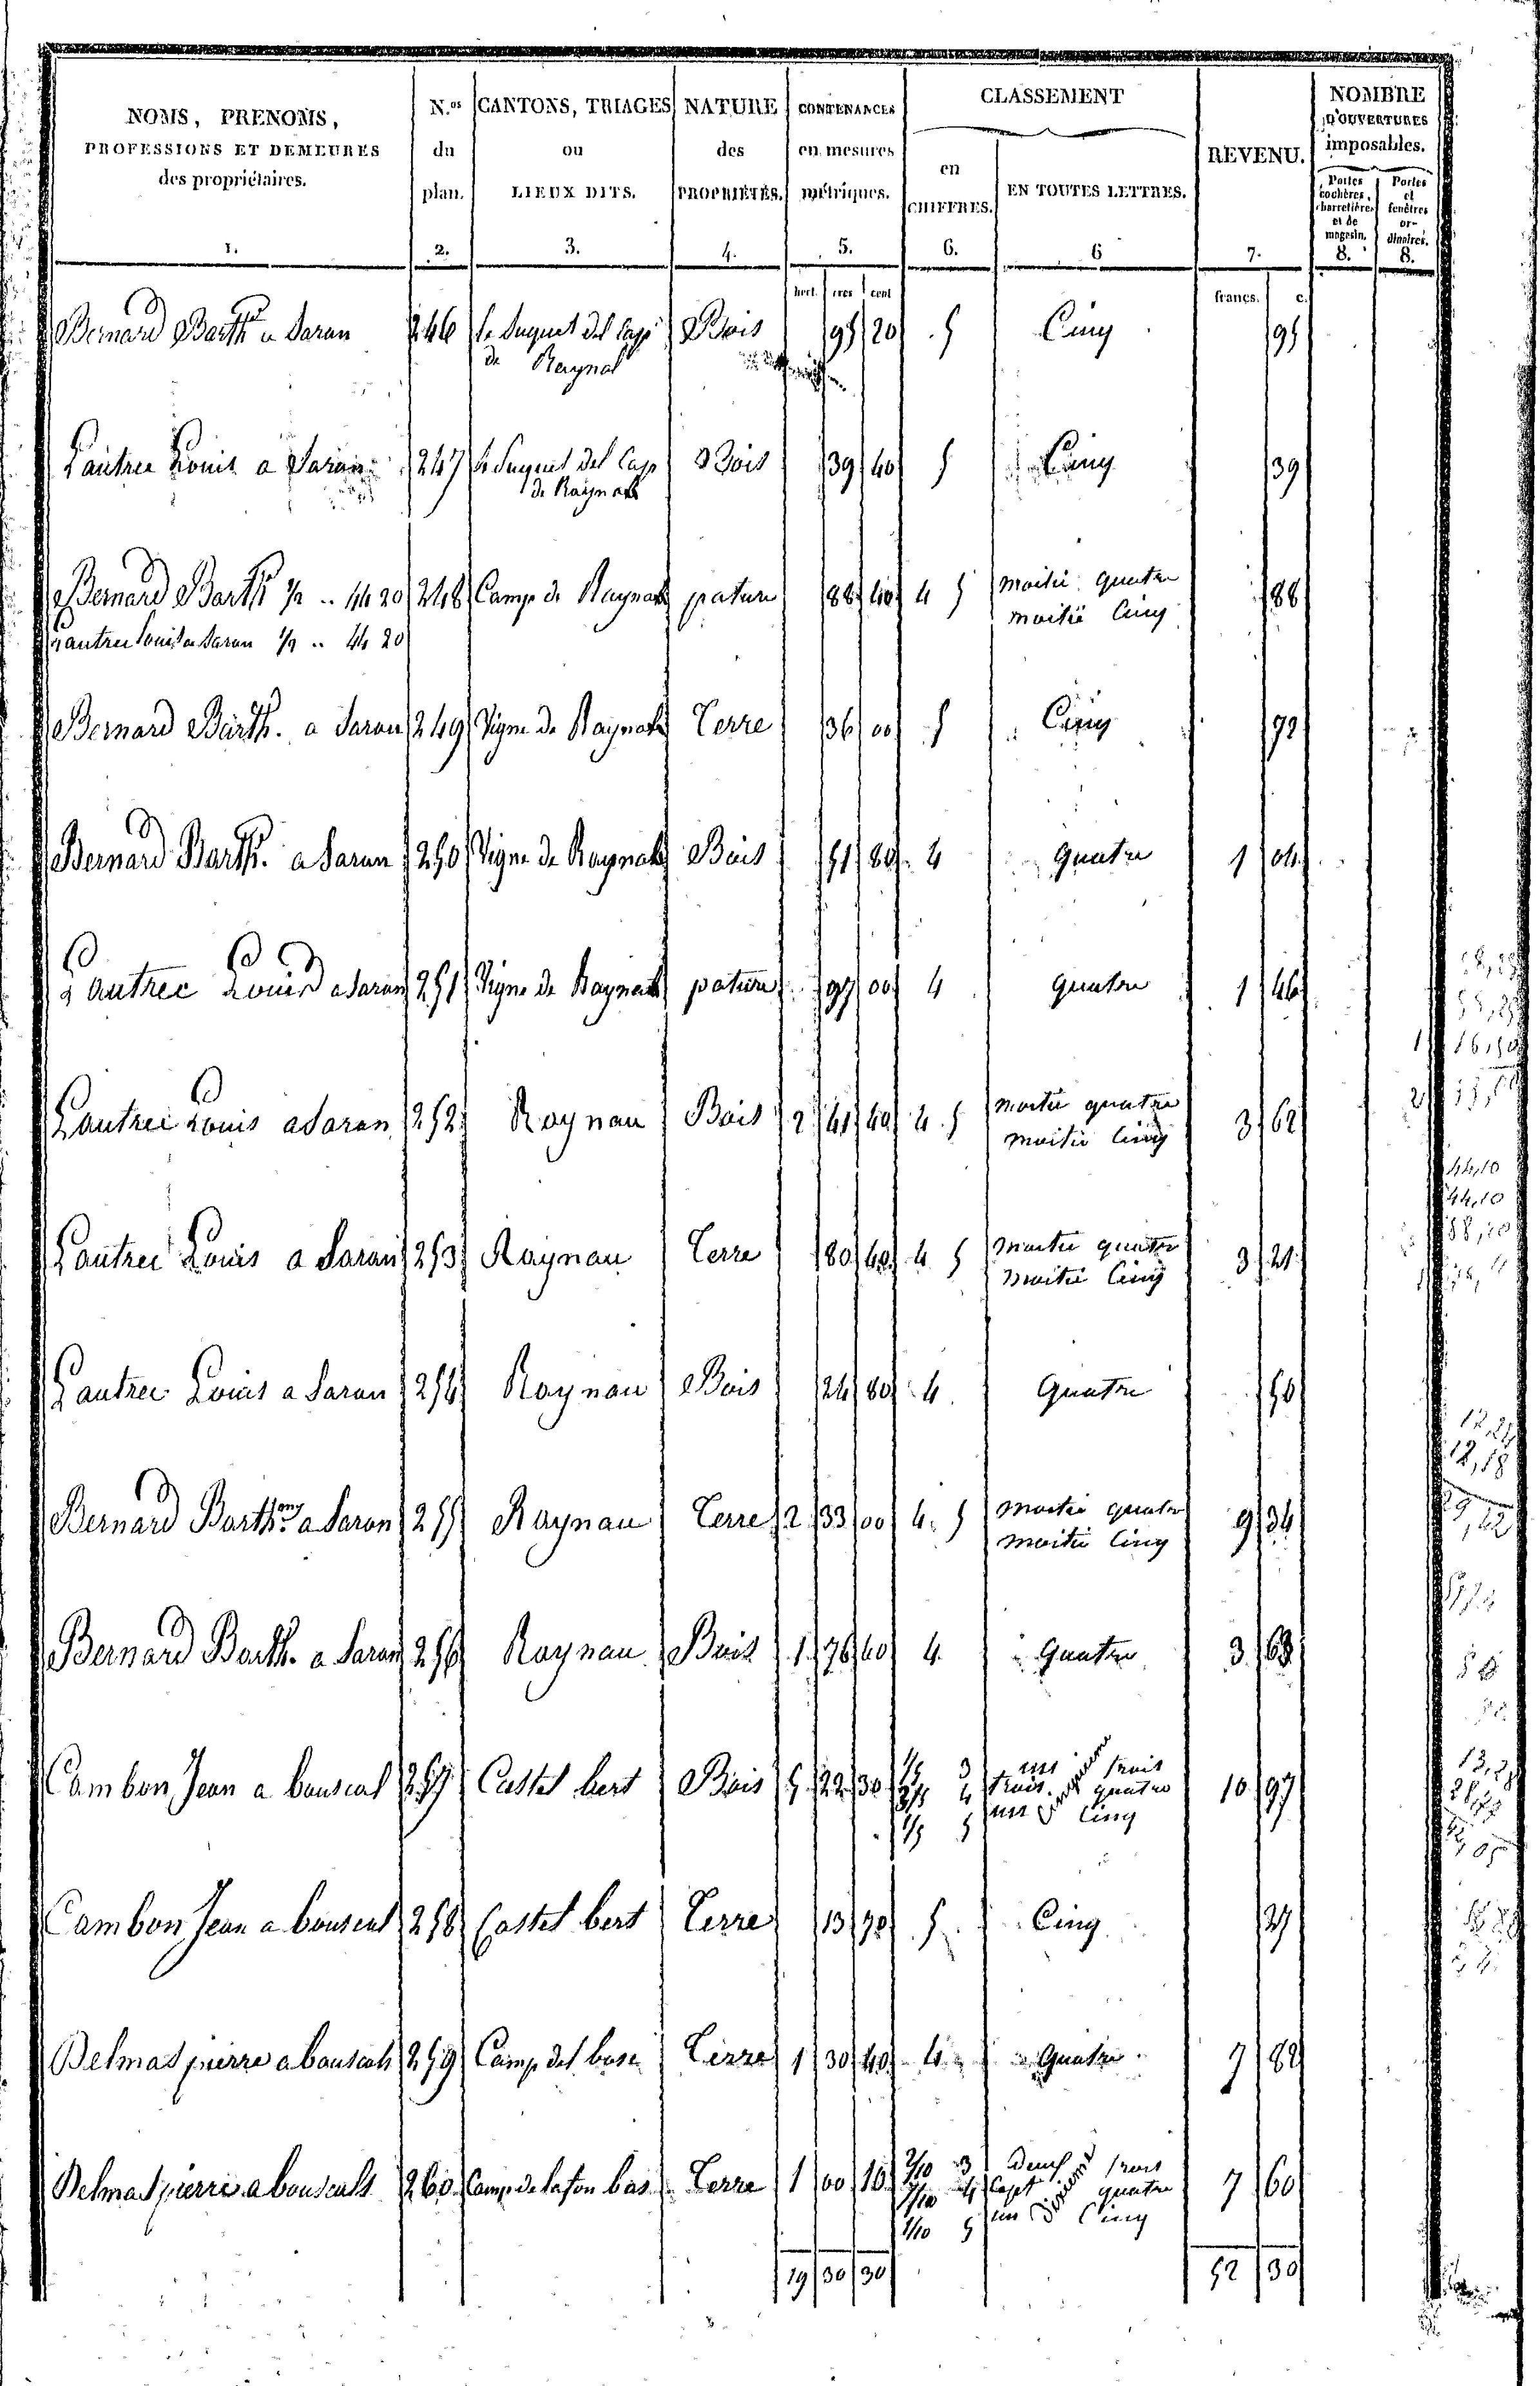 NOMS, PRENOMS, PROFESSIONS ET DEMEURES des propriétaires. 1.
N.os du plan. 2.
CANTONS, TRIAGES ou LIEUX DITS. 3.
NATURE des PROPRIÉTÉS. 4.
CONTENANCES en mesures métriques. 5.
CLASSEMENT
en CHIFFRES. 6.
EN TOUTES LETTRES. 6
REVENU. 7.
NOMBRE D'OUVERTURES imposables.
Portes cochères, charretières et de magasin. 8.
Portes et fenêtres ordinaires. 8.
hect. ares cent francs. c.
Bernard Barth a Saran 246 Le Suquet del Cap Bois 95 20 5 Cinq 95
de Raynal
Lautrec Louis a Saran 247 Le Suquet del Cap Bois 39 40 5 Cinq 39
de Raynal
Bernard Barth 1/2 .. 44 20 248 Camp de Raynal pature 88 40 4 5 moitié quatre 88
Lautrec Louis a Saran 1/2 .. 44 20 moitié Cinq
Bernard Barth. a Saran 249 Vigne de Raynal Terre 36 00 5 Cinq 72
Bernard Barth. a Saran 250 Vigne de Raynal Bois 51 80 4 Quatre 1 04
Lautrec Louis a Saran 251 Vigne de Raynal pature 97 00 4 quatre 1 46
Lautrec Louis a Saran 252 Raynau Bois 2 41 40 4 5 moitié quatre 3 62
moitié Cinq
Lautrec Louis a Saran 253 Raynau Terre 80 40 4 5 moitié quatre 3 21
moitié Cinq
Lautrec Louis a Saran 254 Raynau Bois 24 80 4 Quatre 50
Bernard Barth.my a Saran 255 Raynau Terre 2 33 00 4 5 moitié quatre 9 34
moitié Cinq
Bernard Barth. a Saran 256 Raynau Bois 1 76 40 4 Quatre 3 53
Cambon Jean a bouscul 257 Castel bert Bois 5 22 30 1/5 3 un trois 10 97
3/5 4 trois cinquième quatre
1/5 5 un Cinq
Cambon Jean a bouscul 258 Castel bert Terre 13 70 5 Cinq 27
Belmas pierre a bousculs 259 Camp del bosc Terre 1 30 40 4 Quatre 7 82
Belmas pierre a bousculs 260 Camp de lafon bas Terre 1 00 10 2/10 3 deux trois 7 60
7/10 4 Sept dixième quatre
1/10 5 un Cinq
19 30 30 52 30
44,10
44,10
88,20